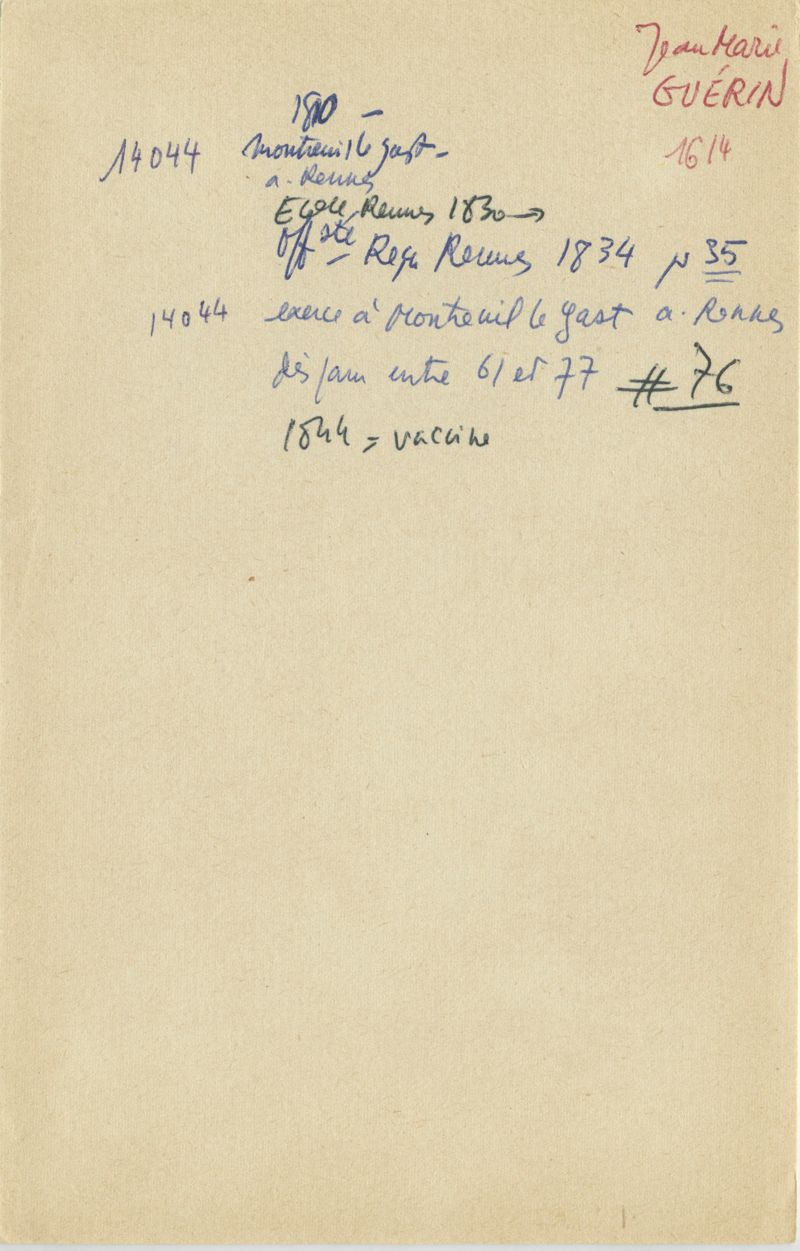 Jean Marie
GUÉRIN
1614
1810 –
14044 Montreuil le gast –
a. Rennes
Ecole Rennes 1830 →
off sté – Reçu Rennes 1834 p 35
14044 exerce à Montreuil le gast a. Rennes
dis entre 61 et 77 # 76
1844 = vaccine